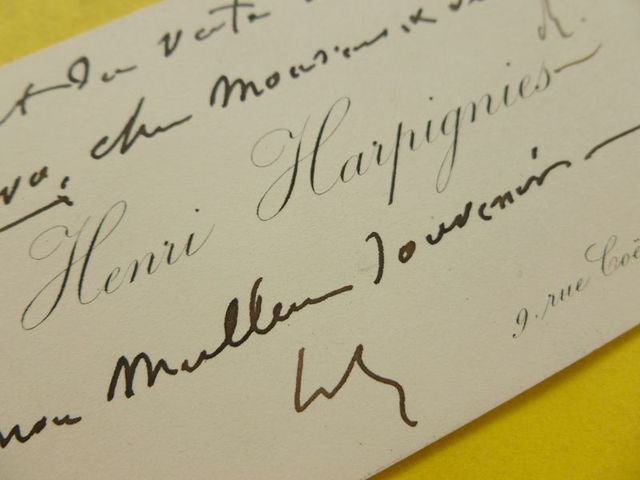 du vente
cher Monsieur
Henri Harpignies
mon Meilleur Souvenir
9. rue Coë